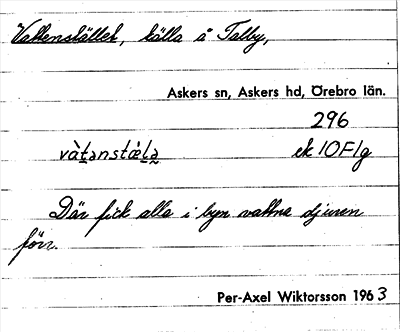 Vattenstället, källa å Talby,
Askers sn, Askers hd, Örebro län.
296
vàt̰ənstǽl̰a̰ ek 10F1g
Där fick alla i byn vattna djuren
förr.
Per-Axel Wiktorsson 1963